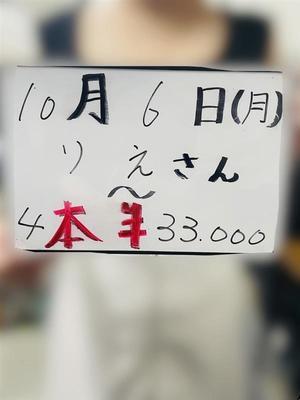 10月6日(月)
りえさん
〜
4本半33.000